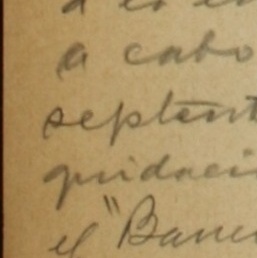 a cabo
septent
quidaci
el "Banc